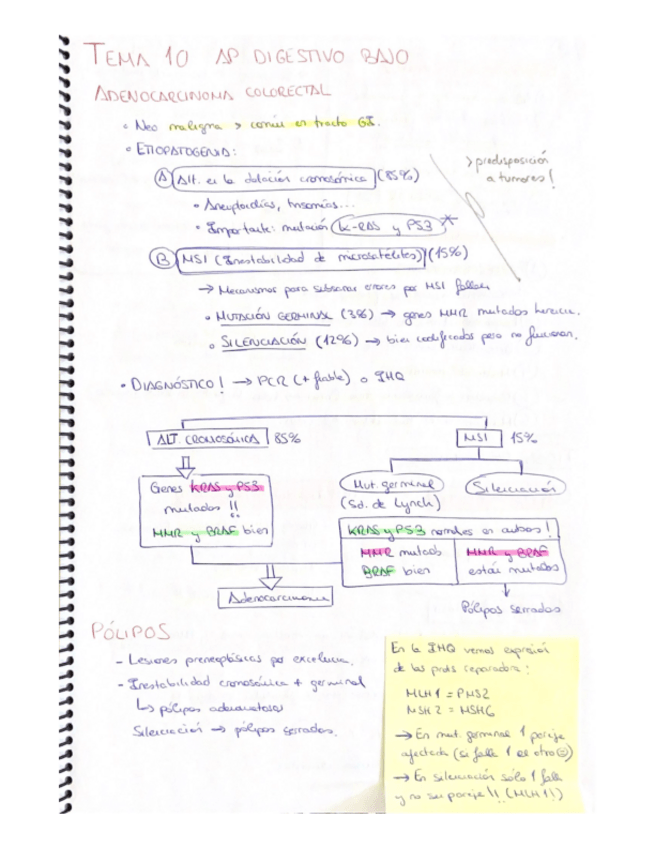 TEMA 10 AP DIGESTIVO BAJO
ADENOCARCINOMA COLORECTAL
• Neo maligna > común en tracto GI.
• ETIOPATOGENIA:
> predisposición
a tumores!
(A) Alt. en la dotación cromosómica (85%)
• Aneuploidías, trisomías...
• Importante: mutación K-RAS y P53 *
(B) MSI (Inestabilidad de microsatélites) (15%)
→ Mecanismos para subsanar errores por MSI fallan
• MUTACIÓN GERMINAL (3%) → genes MMR mutados herencia.
• SILENCIACIÓN (12%) → bien codificados pero no funcionan.
• DIAGNÓSTICO! → PCR (+ fiable) o IHQ
ALT. CROMOSÓMICA 85%
MSI 15%
Genes KRAS y P53
mutados !!
MMR y BRAF bien
Mut. germinal
(Sd. de Lynch)
Silenciación
KRAS y P53 normales en ambos!
MMR mutado
BRAF bien
MMR y BRAF
están mutados
Adenocarcinoma
Pólipos serrados
PÓLIPOS
- Lesiones preneoplásicas por excelencia.
- Inestabilidad cromosómica + germinal
↳ pólipos adenomatosos
Silenciación → pólipos serrados.
En la IHQ vemos expresión
de las prots reparadoras:
MLH1 = PMS2
MSH2 = MSH6
→ En mut. germinal 1 pareja
afectada (si falla 1 el otro )
→ En silenciación sólo 1 falla
y no su pareja!! (MLH1!)